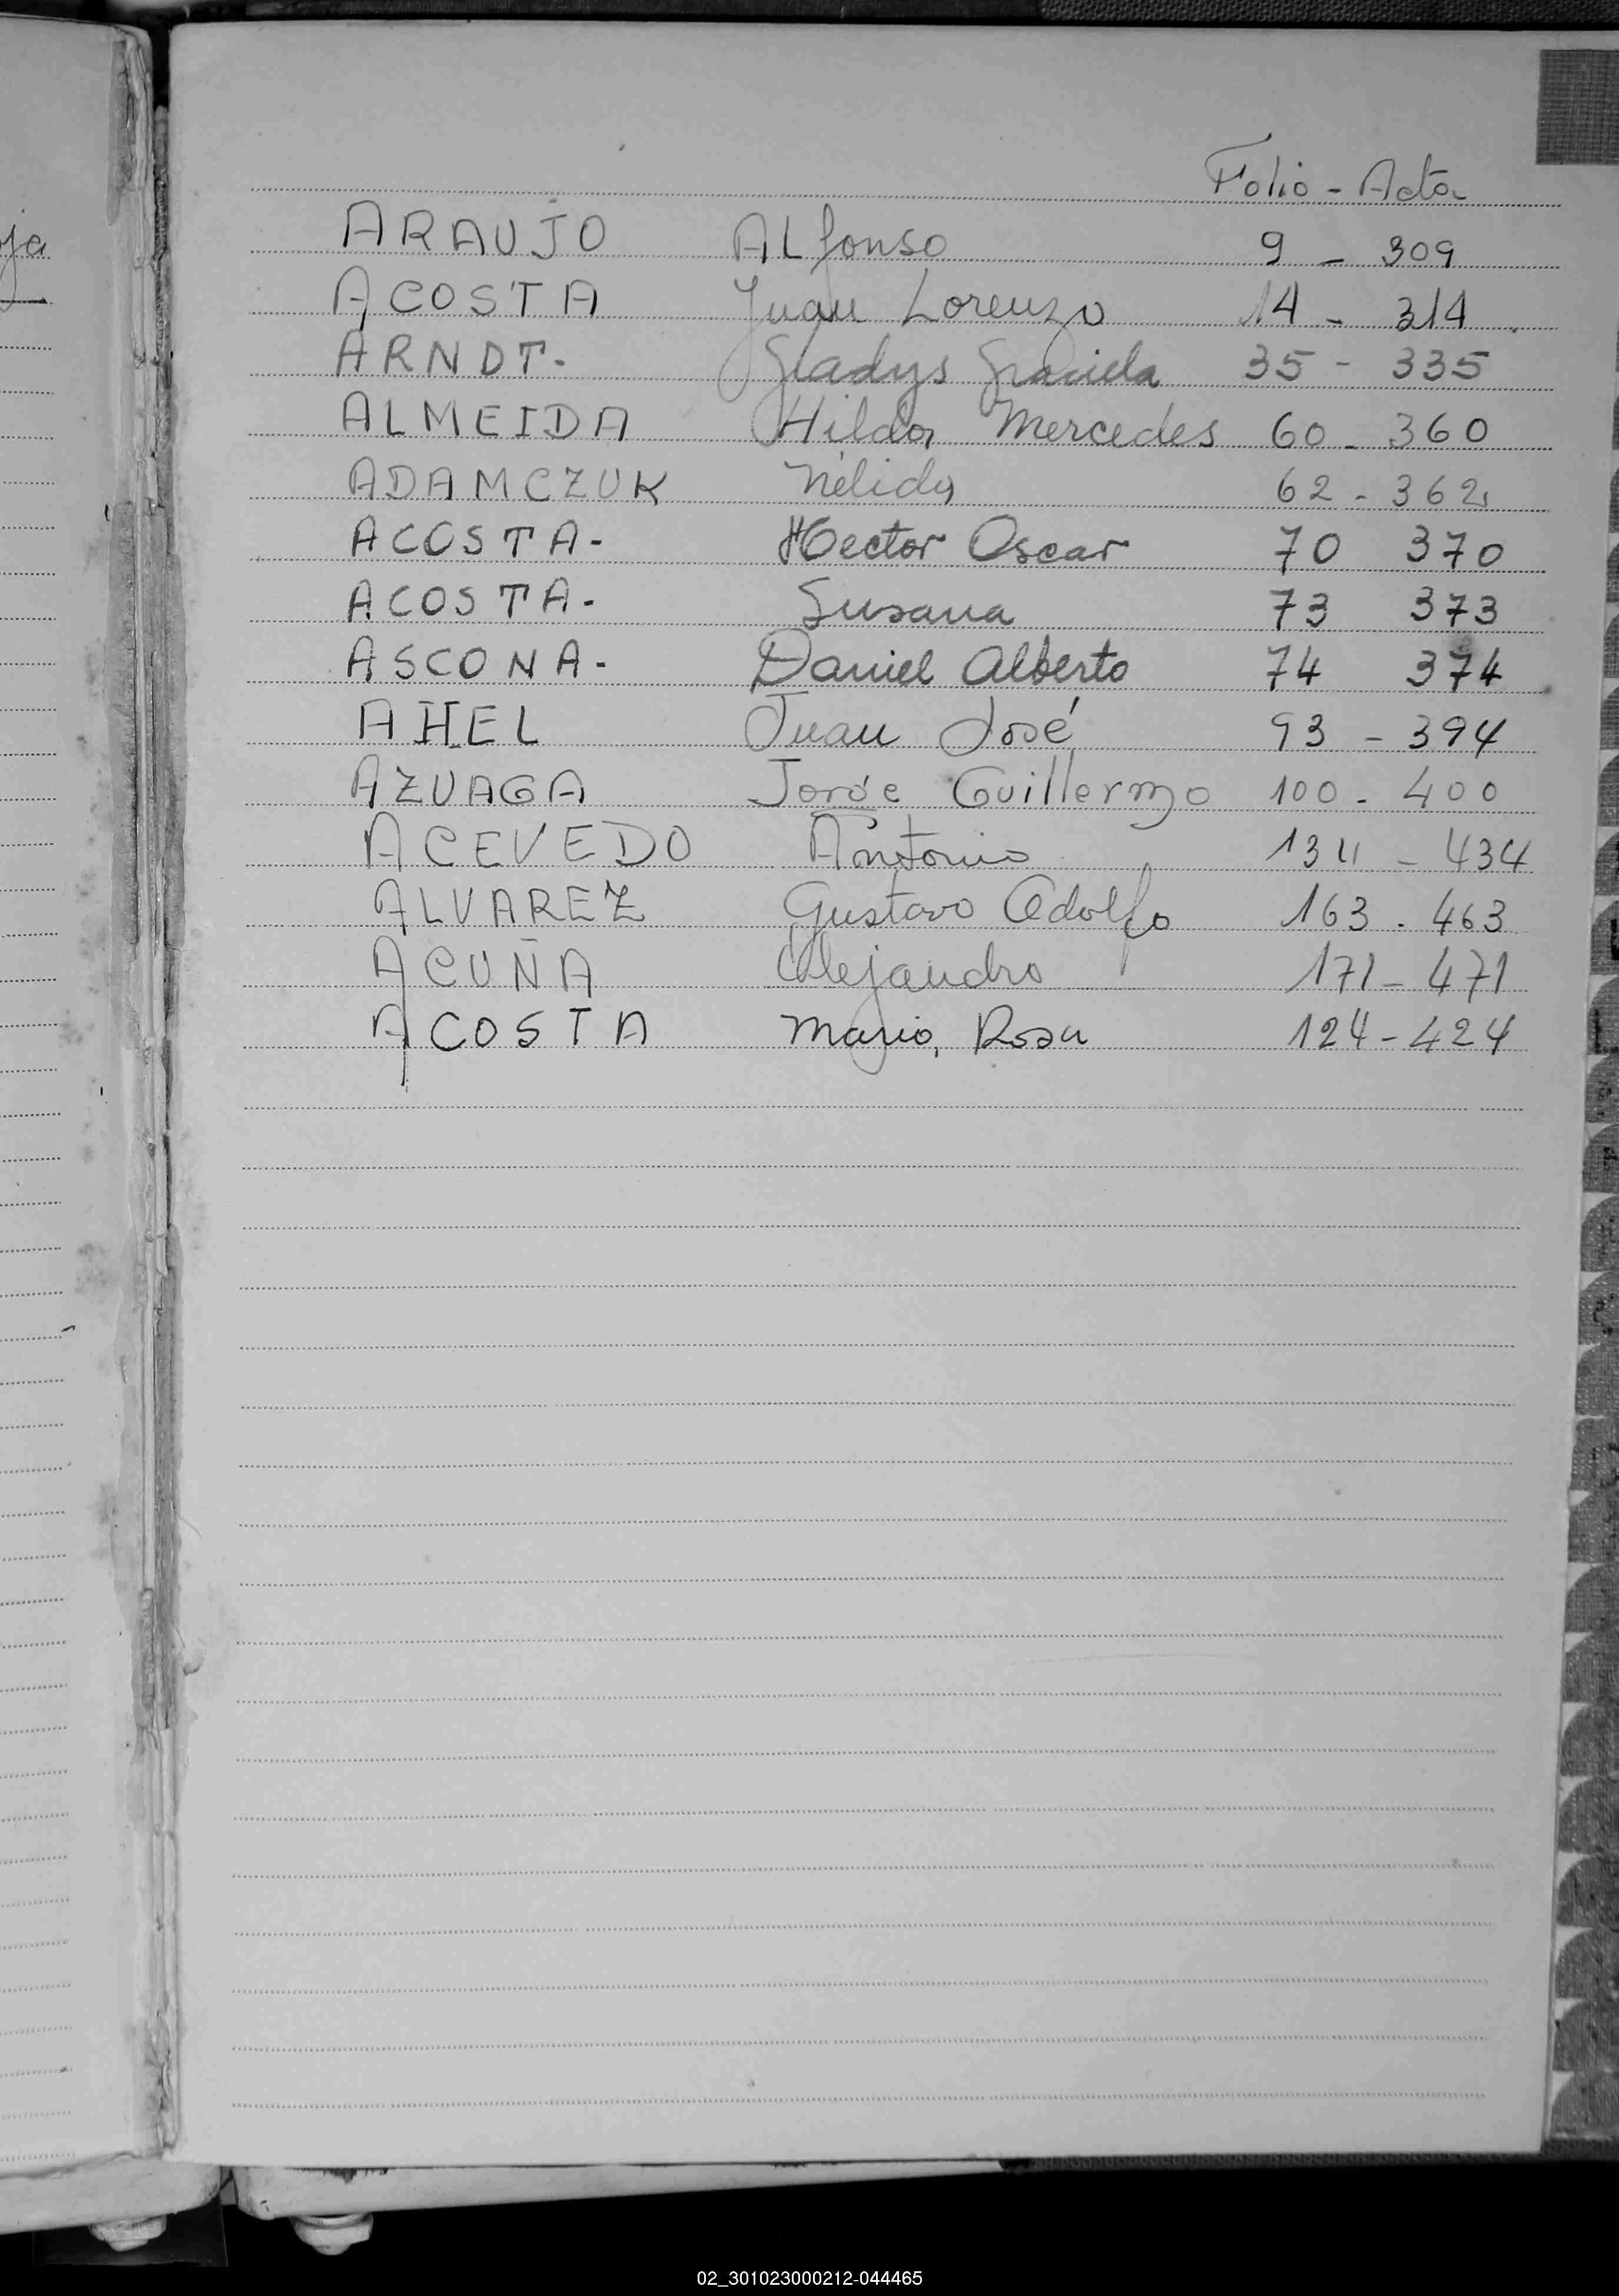 ja
Folio - Acta
ARAUJO ALfonso 9 - 309
ACOSTA Juan Lorenzo 14 - 314
ARNDT. Gladys Graciela 35 - 335
ALMEIDA Hilda Mercedes 60 - 360
ADAMCZUK Nélida 62 - 362
ACOSTA- Hector Oscar 70 370
ACOSTA- Susana 73 373
ASCONA- Daniel Alberto 74 374
AHEL Juan José 93 - 394
AZUAGA Jorge Guillermo 100 - 400
ACEVEDO Antonio 134 - 434
ALVAREZ Gustavo Adolfo 163 - 463
ACUÑA Alejandro 171 - 471
ACOSTA Mario, Rosa 124 - 424
02_301023000212-044465